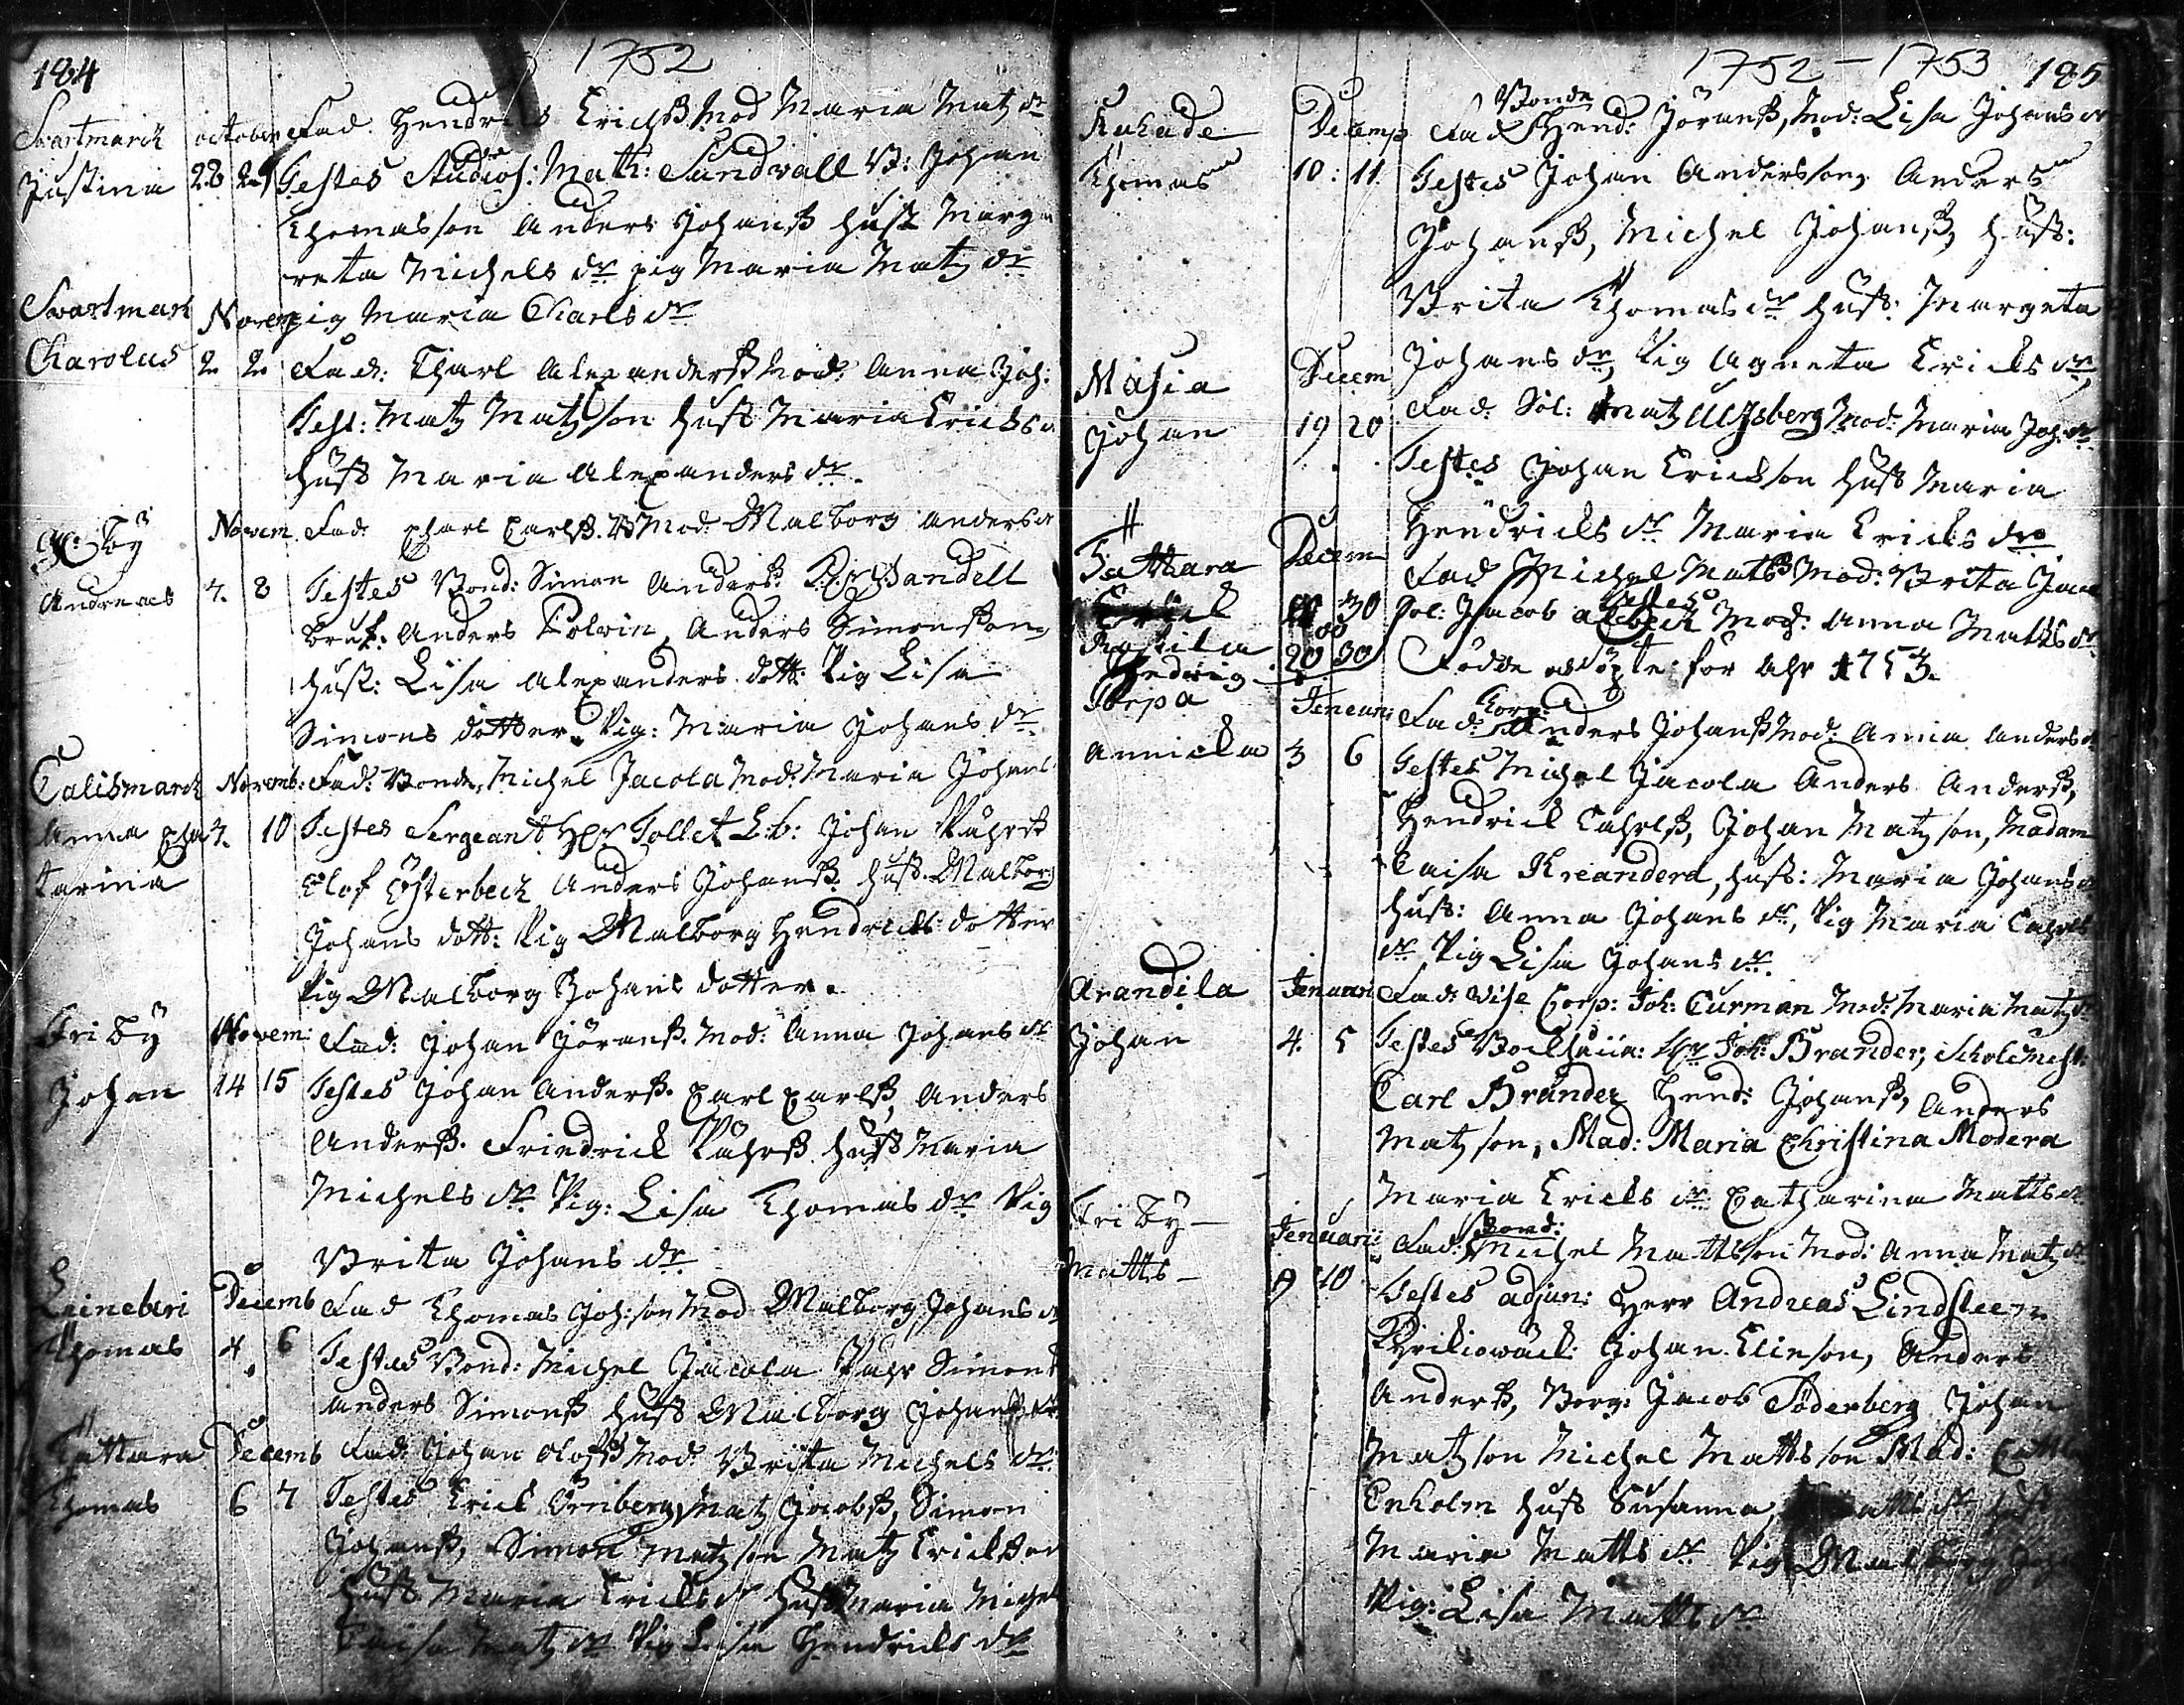 184
1752
Svartmarck october Fad. Hendrics Erichß Mod Maria Matz dr
Justina 28 29 Testes Studios: Math: Sundvall B: Johan
Thomasson Anders Johanß hust Marga
reta Michels dr pig Maria Matz dr
Svartmark Novem pig Maria Charls dr
Charolus 2 2 Fad: Charl Alexanderß Mod: Anna Joh:
Test: Matz Matzson hust Maria Ericks d
hust Maria Alexanders dr.
by Novem. Fad: Charl Carlß. Mod: Malborg anders d
Andreas 7. 8 Testes Bond: Simon Anderß. Sandell
Anders Polvin, Anders Simonsson
hust: Lisa Alexanders dott: Pig Lisa
Simons dotter. Pig: Maria Johans dr
Calismarck Novemb: Fad: Bonde, Michel Jacola Mod: Maria Johans
Anna Cha 7. 10 Testes Sergeant Hr Tollet Johan Påhrß
tarina Olof Österbeck Anders Johanß. hust. Malborg
Johans dott: Pig Malborg Hendricks dotter
Pig Malborg Johans dotter.
Friby Novem: Fad: Johan Jöranß. Mod: Anna Johans dr
Johan 14 15 Testes Johan Anderß. Carl Carlß, Anders
Anderß. Friedrick Påhrß hust Maria
Michels dr Pig: Lisa Thomas dr Pig
Brita Johans dr
Leineberi Decemb Fad Thomas Joh:son Mod Malborg Johans d
Thomas 4 6 Testes Bond: Michel Jacola Påhr Simons
anders Simonß hust Malborg Johans dr
Tattara Decemb Fad: Johan Olofß Mod: Brita Michels dr
Thomas 6 7 Testes Erick Örnberg, Matz Jacobß, Simon
Johanß, Simon Matzson Matz Erickson
hust Maria Ericks dr hust Maria Michel
Caisa Matz dr Pig Lisa Hendricks dr
1752 - 1753 185
Bonde
Kuhade Decemp Fad Hend: Jöranß, Mod: Lisa Johans dr
Thomas 10: 11. Testes Johan Andersson, Anders
Johanß, Michel Johanß, hust:
Brita Thomas dr hust: Margeta
Johans dr, Pig Agneta Ericks dr,
Masia Decem Fad: Sol: Matz Mod: Maria Joh: dr
Johan 19 20 Testes Johan Erickson hust Maria
Hendricks dr Maria Ericks dr
Tattara Decem Fad Michel Matß Mod: Brita Jaco
30 Sol: Jacob Mod: Anna Matts dr
20 30 Födde och döpte för Åhr 1753.
Hedvig
Corp:
Torpa Jenuari Fad: Anders Johanß Mod: Anna Anders d
Annicka 3 6 Testes Michel Jacola Anders Anderß,
Hendrick Cahrlß, Johan Matzson, Madam
Caisa Kreandera, hust: Maria Johans d
hust: Anna Johans dr, Pig Maria Cahrls
dr, Pig Lisa Johans dr.
Arandila Jenuari Fad: Vise Corp: Joh: Curman Mod: Maria Matz dr
Johan 4. 5 Testes Hr Joh: Brander, Scholemest:
Carl Brander Hend: Johanß, Anders
Matzson, Mad: Maria Christina Modera
Maria Ericks dr Catharina Matts dr
Bond:
Friby - Jenuari: Fad: Michel Mattson Mod: Anna Matz dr
Matts - 9 10 Testes adjun: Herr Andreas Lindsteen
Johan Elinson, Anders
Anderß, Borg: Jacob Söderberg Johan
Matzson Michel Mattsson Mad:
Enholm hust Susanna,
Maria Matts dr Pig Malborg
Pig: Lisa Matts dr